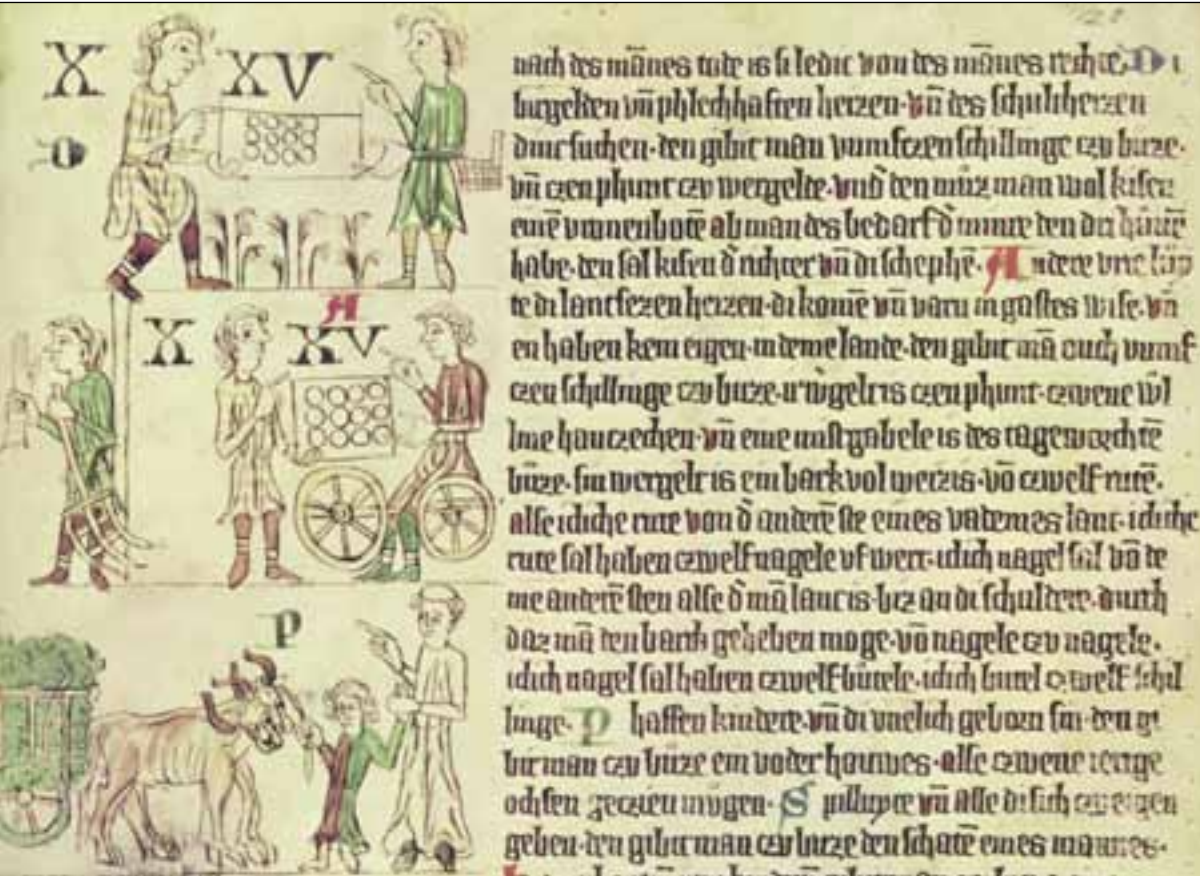 X XV
O
A
X XV
P
nach des mānes tode is si ledic von des mānes rechte. D i
birgelden vn̄ phlechhaften heizen. vn̄ des schultheizen
dinc suchen. den gibit man vumfczen schillinge czu buze.
vn̄ czen phunt czv wergelde. vnd̕ den muz man wol kisen
einē vronenbotē ab man des bedarf d̕ minre den dri hūuē
habe. den sal kisen d̕ richter vn̄ di schephē. A ndere vrie lūp
te di lantsezen heizen. di komē vn̄ varn in gastes wise. vn̄
en haben kein eigen in deme lande. den gibit mā ouch vumf
czen schillinge czu buze. ir w̕gelt is czen phunt. czwene wl
line hanczechen. vn̄ eine mistgabele is des tagewerchtē
būze. sin wergelt is ein berk vol weizis. vō czwelf rutē.
alse icliche rute von d̕ anderē ste eines vademes lanc. icliche
rute sal haben czwelf nagele vf wert. iclich nagel sal vō de
me anderē sten alse d̕ mā lanc is. biz an di schuldere. durch
daz mā den barch geheben moge. vō nagele czv nagele.
iclich nagel sal haben czwelf būtele. iclich butel czwelf schil
linge. P haffen kindere. vn̄ di vnelich geborn sin. den gi
bit man czu buze ein voder houwes. alse czwene ierige
ochsen geczien mugen. S pillupte vn̄ alle di sich czu eigen
geben. den gibit man czu buze den schatē eines mannes.